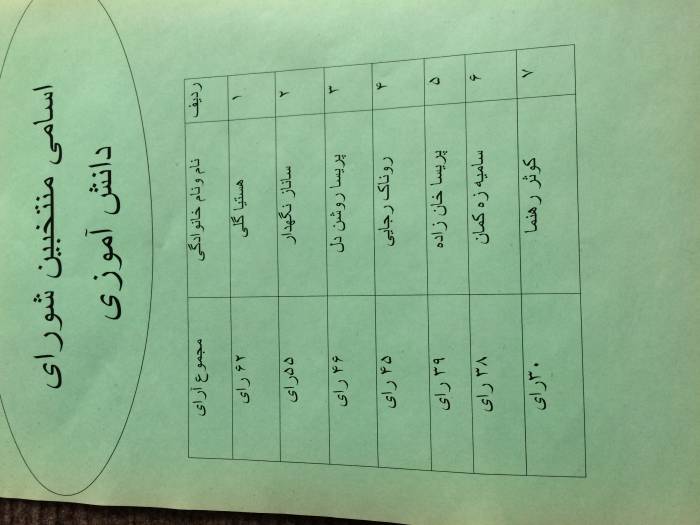 اسامی منتخبین شورای
دانش آموزی
ردیف نام ونام خانوادگی مجموع آرای
۱ هستیا گلی ۶۲ رای
۲ ساناز نگهدار ۵۵رای
۳ پریسا روشن دل ۴۶ رای
۴ روناک رجایی ۴۵ رای
۵ پریسا خان زاده ۳۹ رای
۶ سامیه زه کمان ۳۸ رای
۷ کوثر رهنما ۳۰رای